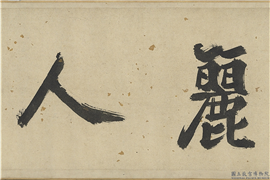 麗
人
國立故宮博物院